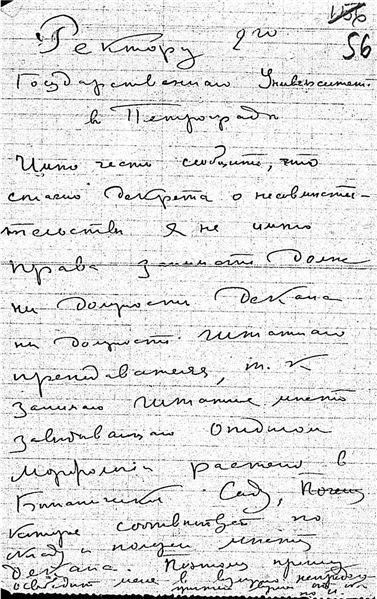 156
56
Ректору 2го
Государственного Университет.
в Петрограде
Имею честь сообщить, что
согласно декрета о несовмести-
тельстве я не имею
права занимать долж
ни должности декана
ни должность штатного
преподавателя, т. к
занимаю штатное место
заведывающаго Отделом
Морфологии растений в
Ботаническ Саду,
которое соответствует по
окладу и полезн месту
декана. Поэтому прошу
освободить меня в